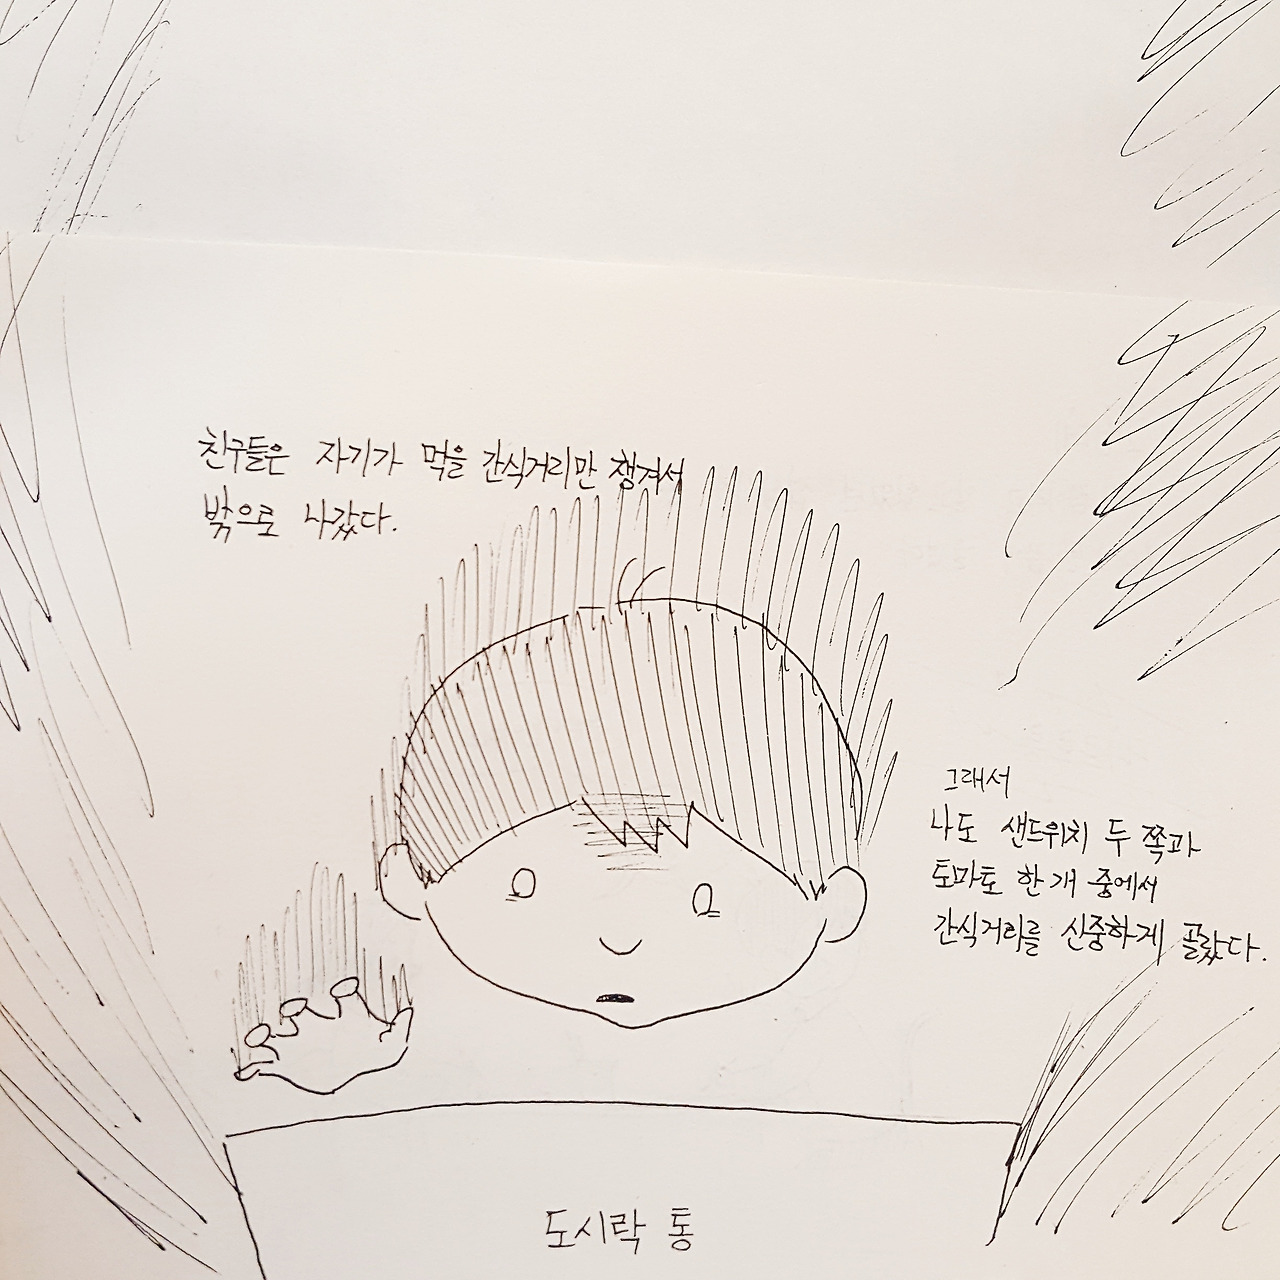 친구들은 자기가 먹을 간식거리만 챙겨서
밖으로 나갔다.
그래서
나도 샌드위치 두 쪽과
토마토 한 개 중에서
간식거리를 신중하게 골랐다.
도시락 통